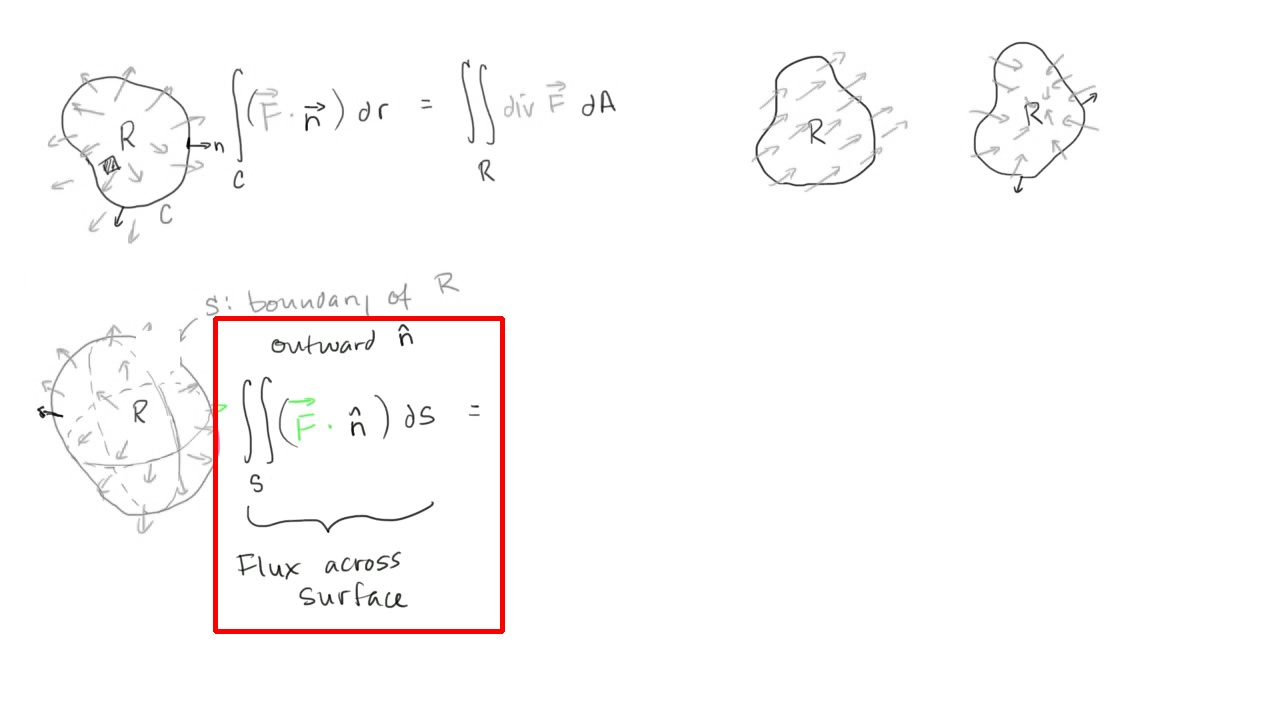 R
n
C
∫ (F⃗ · n⃗) dr = ∬ div F⃗ dA
C
R
R
R
S: boundary of R
outward n̂
R
∬ (F⃗ · n̂) dS =
S
Flux across
surface